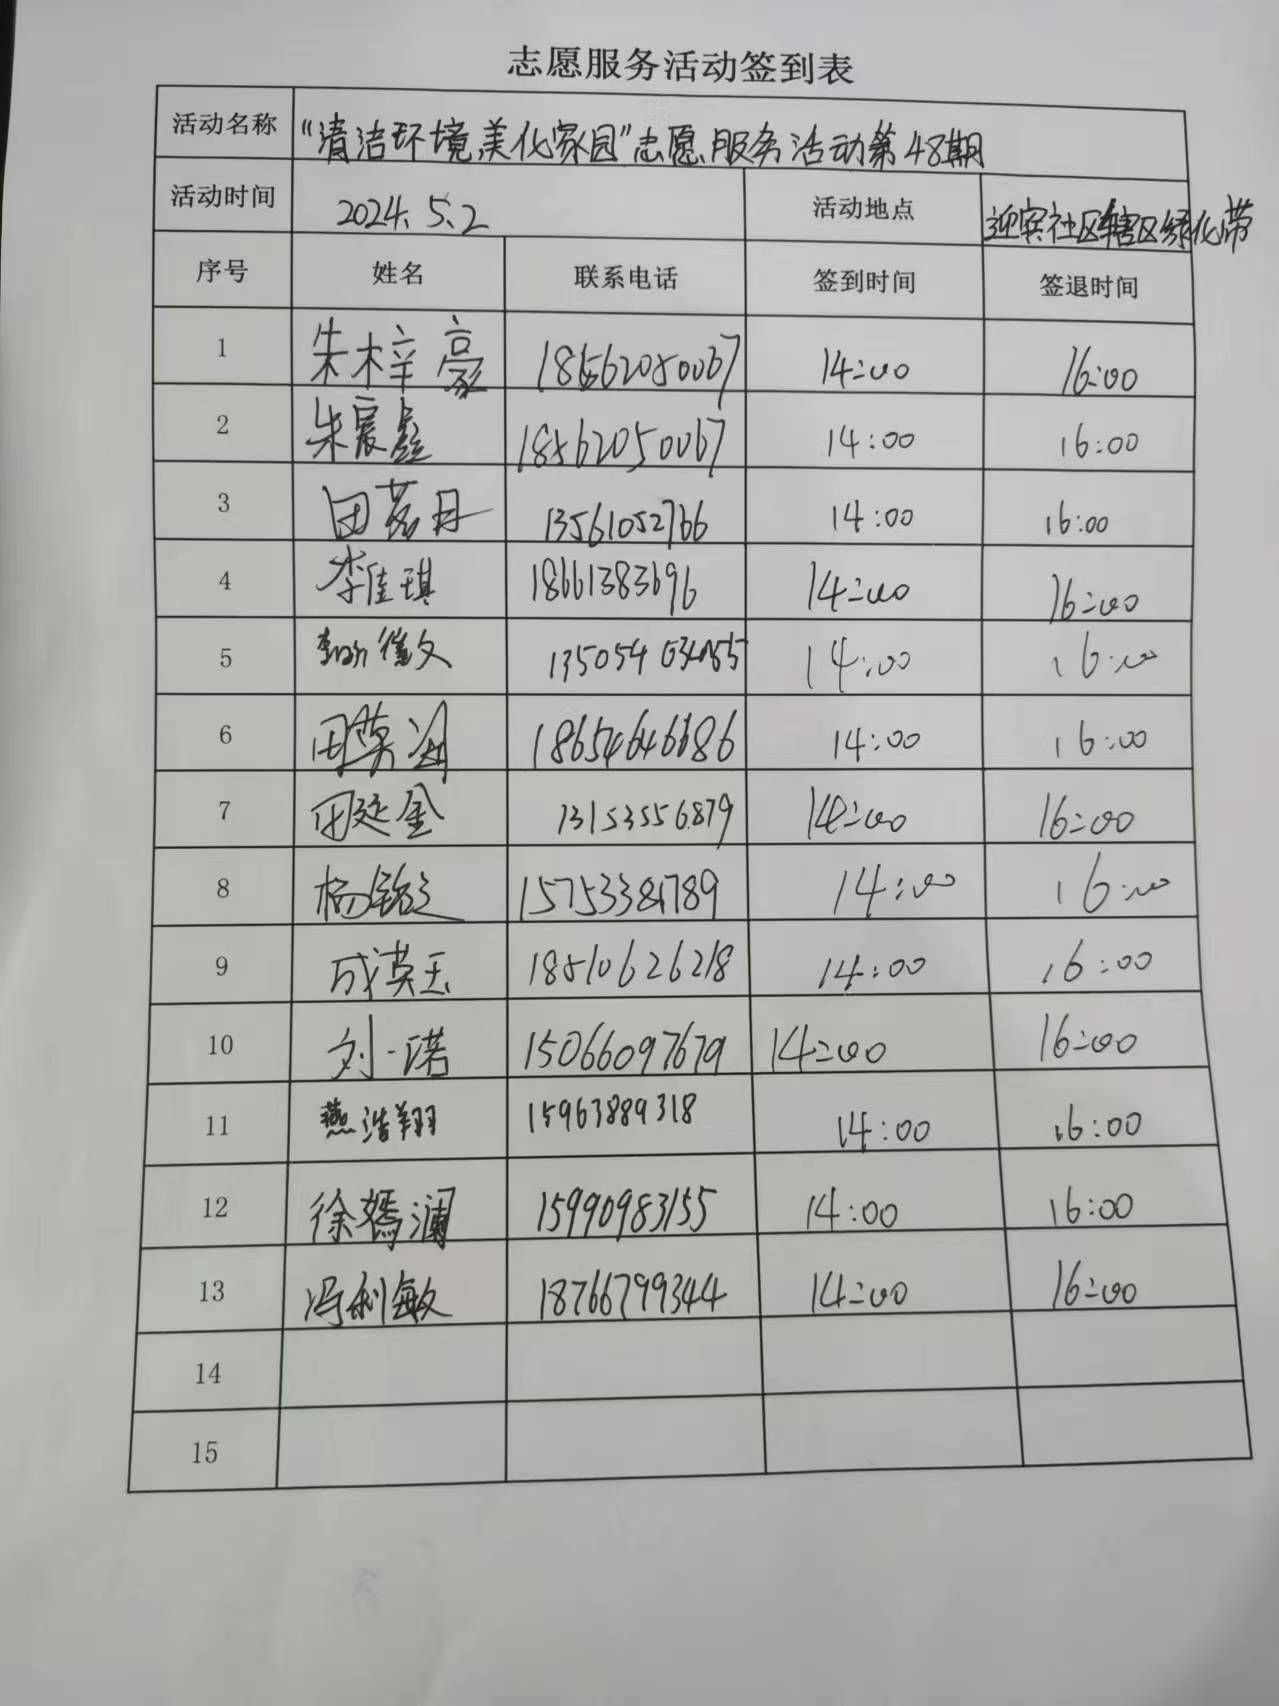 志愿服务活动签到表
活动名称 "清洁环境美化家园"志愿服务活动第48期
活动时间 2024.5.2 活动地点 迎宾社区辖区绿化带
序号 姓名 联系电话 签到时间 签退时间
1 朱梓豪 18562050067 14:00 16:00
2 朱宸鑫 18562050067 14:00 16:00
3 13561052766 14:00 16:00
4 李佳琪 18661383696 14:00 16:00
5 14:00 16:00
6 18654646686 14:00 16:00
7 田延金 13153556879 14:00 16:00
8 14:00 16:00
9 成英玉 18510626218 14:00 16:00
10 刘一诺 15066097679 14:00 16:00
11 燕浩翔 15963889318 14:00 16:00
12 徐嫣澜 15990983155 14:00 16:00
13 冯利敏 18766799344 14:00 16:00
14
15